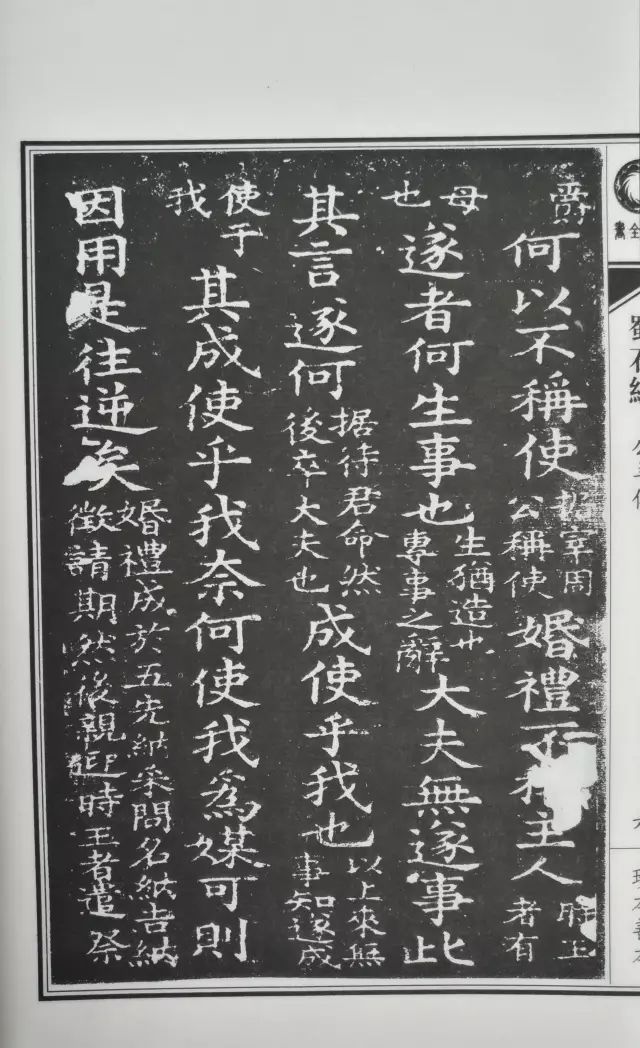 爵何以不稱使宰周公稱使婚禮不稱主人王者有
母也遂者何生事也生猶造也專事之辭大夫無遂事此
其言遂何据待君命然後卒大夫也成使乎我也以上來無事知遂成
使于我其成使乎我奈何使我爲媒可則
因用是往逆矣婚禮成於五先納采問名納吉納徵請期然後親迎時王者遣祭